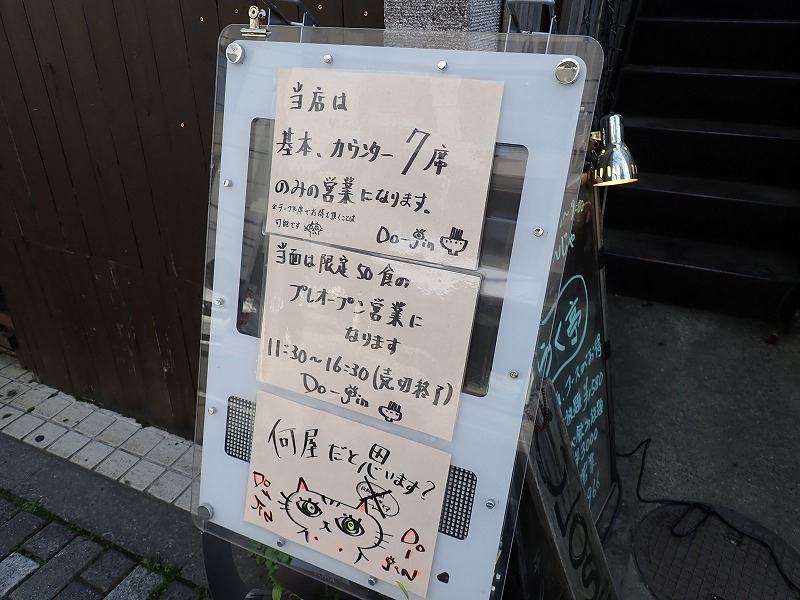 当店は
基本、カウンター7席
のみの営業になります。
※テーブル席でお待ち頂くことは
可能です
Do-gin
当面は限定50食の
プレオープン営業に
なります
11:30〜16:30(売切終了)
Do-gin
何屋だと思います?
Do-
gin
Do-
gin
く亭